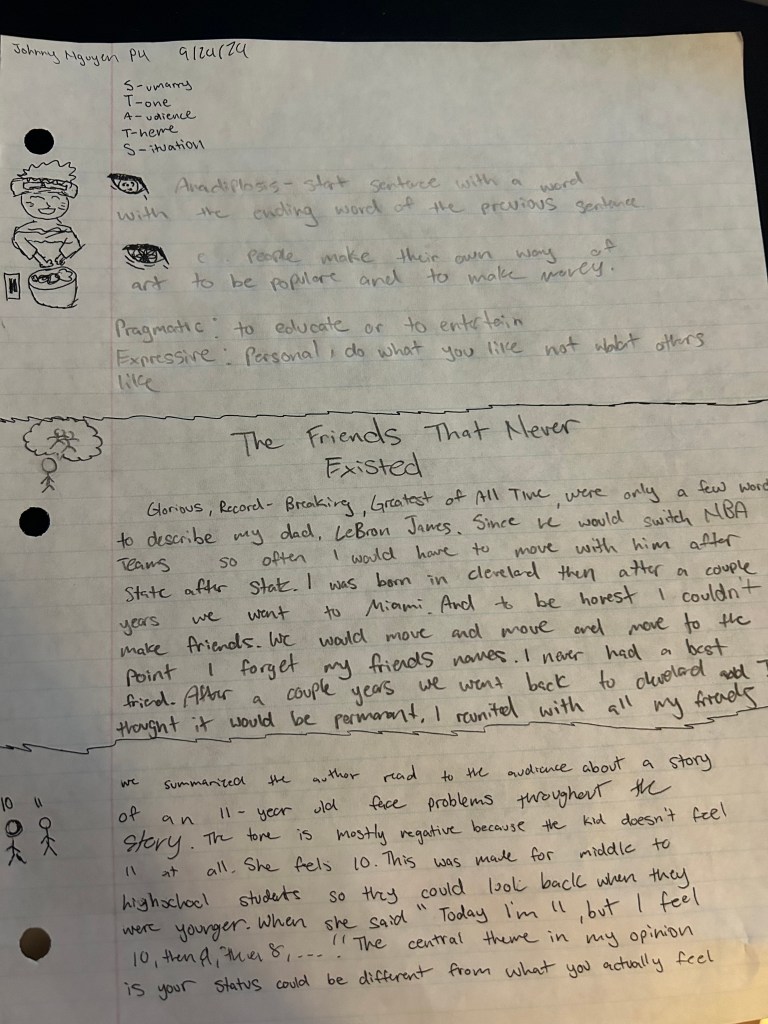 Johnny Nguyen P4 9/24/24
S-ummary
T-one
A-udience
T-heme
S-ituation
Anadiplosis- start sentence with a word
with the ending word of the previous sentence
people make their own way of
art to be populare and to make money.
Pragmatic: to educate or to entertain
Expressive: Personal, do what you like not what others
like
The Friends That Never
Existed
Glorious, Record-Breaking, Greatest of All Time, were only a few word
to describe my dad, LeBron James. Since he would switch NBA
Teams so often I would have to move with him after
State after State. I was born in cleveland then after a couple
years we went to Miami. And to be honest I couldn't
make friends. We would move and move and move to the
point I forget my friends names. I never had a best
friend. After a couple years we went back to cleveland and I
thought it would be permanant. I reunited with all my friends
10 11
we summarized the author read to the audience about a story
of an 11-year old face problems throughout the
story. The tone is mostly negative because the kid doesn't feel
11 at all. She feels 10. This was made for middle to
highschool students so they could look back when they
were younger. When she said "Today I'm 11, but I feel
10, then 9, then 8, ...." The central theme in my opinion
is your status could be different from what you actually feel